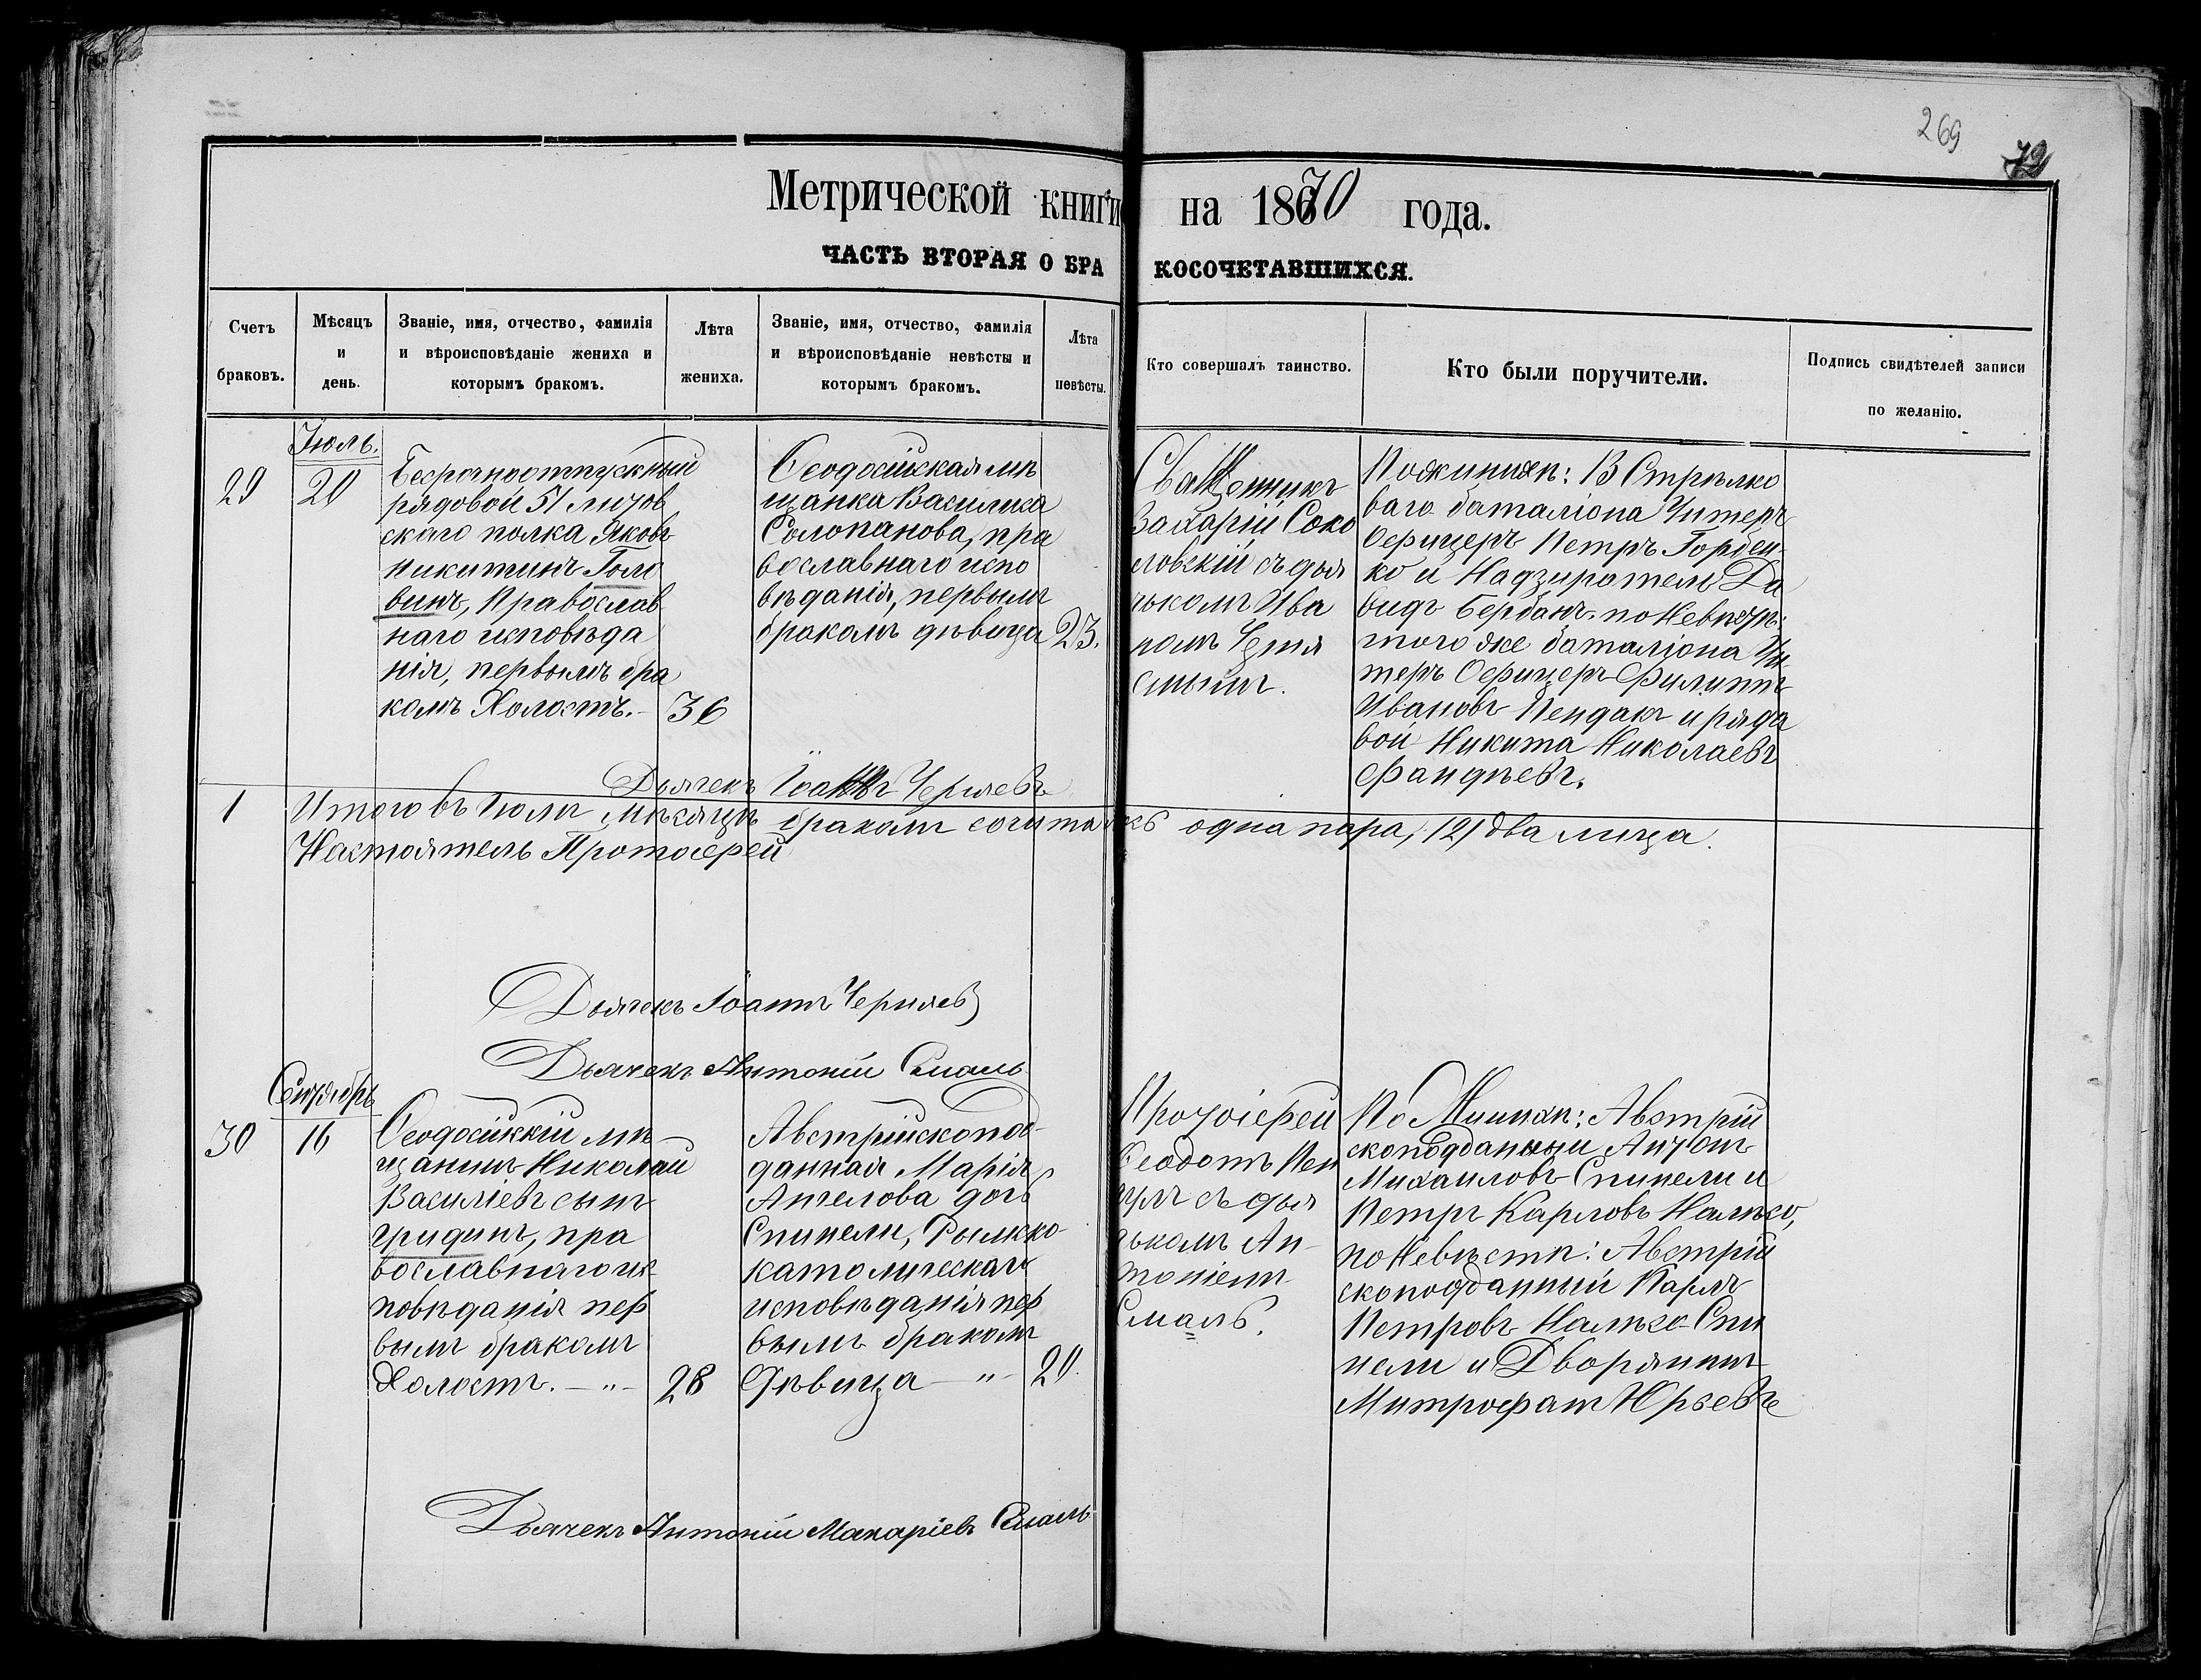 269
72
Метрической книги на 1870 года.
ЧАСТЬ ВТОРАЯ О БРАКОСОЧЕТАВШИХСЯ.
Счетъ браковъ.
Мѣсяцъ и день.
Званіе, имя, отчество, фамилія
и вѣроисповѣданіе жениха и
которымъ бракомъ.
Лѣта жениха.
Званіе, имя, отчество, фамилія
и вѣроисповѣданіе невѣсты и
которымъ бракомъ.
Лѣта невѣсты.
Кто совершалъ таинство.
Кто были поручители.
Подпись свидѣтелей записи
по желанію.
29
Іюль.
20
Безсрочноотпускный
рядовой 51 Литов
скаго полка Яковъ
Никитинъ Голо
винъ, Православ
наго исповѣда
нія, первымъ бра
комъ Холостъ.
36
Ѳеодосійская мѣ
щанка Василиса
Солопанова, пра
вославнаго испо
вѣданія, первымъ
бракомъ дѣвица
23.
Священникъ
Захарій Соко
ловскій съ дья
чкомъ Ива
номъ Черня
По женихѣ: 13 Стрѣлко
ваго баталіона Унтеръ
Офицеръ Петръ Горбен
ко и Надзиратель Да
видъ Бербанъ. по Невѣстѣ:
того же баталіона Ун
теръ Офицеръ Филиппъ
Ивановъ Пендакъ и рядо
вой Никита Николаевъ
Фандѣевъ.
Дьячекъ Іоаннъ Черняевъ
1 Итого въ Іюлѣ мѣсяцѣ бракомъ сочиталась одна пара, /2/ два лица.
Настоятель Протоіерей
Дьячекъ Іоаннъ Черняевъ
Дьячекъ Антоній Смаль
30
Сентябрь
16
Ѳеодосійскій мѣ
щанинъ Николай
Василіевъ сынъ
Гридинъ, пра
вославнаго ис
повѣданія пер
вымъ бракомъ
Холостъ. — " —
28
Австрійскопод
данная Марія
Ангелова дочь
Спинели, Римско
католическаго
исповѣданія пер
вымъ бракомъ
Дѣвица — " —
20.
Протоіерей
Ѳеодотъ
съ дья
чкомъ Ан
тоніемъ
Смаль.
По Женихѣ: Австрій
скоподданный Антонъ
Михаиловъ Спинели и
Петръ Карловъ
по Невѣстѣ: Австрій
скоподданный Карлъ
Петровъ Спи
нели и Дворянинъ
Митрофанъ Юрьевъ
Дьячекъ Антоній Макаріевъ Смаль